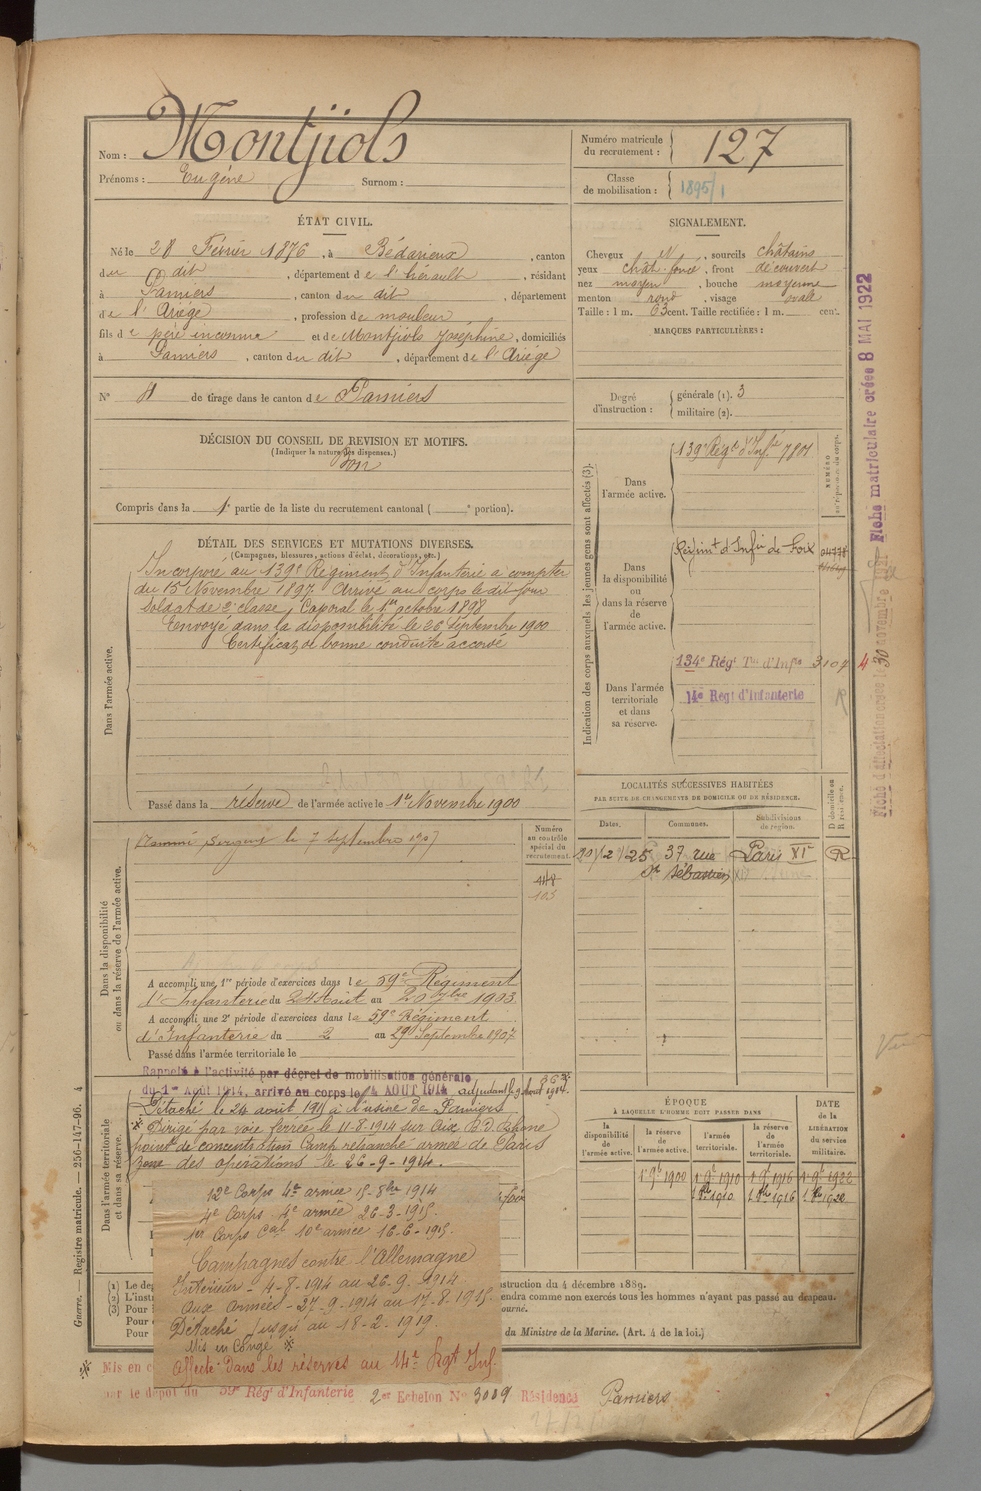 Nom : Montjiols
Prénoms : Eugène Surnom :
Numéro matricule du recrutement : 127
Classe de mobilisation : 1895/1
ÉTAT CIVIL.
Né le 28 Février 1876, à Bédarieux, canton
du dit, département de l'hérault, résidant
à Pamiers, canton du dit, département
de l'Ariège, profession de mouleur
fils de père inconnu et de Montjiols Joséphine, domiciliés
à Pamiers, canton du dit, département de l'Ariège
SIGNALEMENT.
Cheveux N, sourcils châtains
yeux chât. foncé, front découvert
nez moyen, bouche moyenne
menton rond, visage ovale
Taille : 1 m. 63 cent. Taille rectifiée : 1 m. cent.
MARQUES PARTICULIÈRES :
N° de tirage dans le canton de Pamiers
Degré d'instruction : générale (1). 3
militaire (2).
DÉCISION DU CONSEIL DE REVISION ET MOTIFS.
(Indiquer la nature des dispenses.)
Bon
Compris dans la 1e partie de la liste du recrutement cantonal ( e portion).
DÉTAIL DES SERVICES ET MUTATIONS DIVERSES.
(Campagnes, blessures, actions d'éclat, décorations, etc.)
Dans l'armée active.
Incorporé au 139e Régiment d'Infanterie à compter
du 15 Novembre 1897. Arrivé au corps le dit jour
soldat de 2e classe, Caporal le 1er octobre 1898
Envoyé dans la disponibilité le 26 Septembre 1900
Certificat de bonne conduite accordé
Passé dans la réserve de l'armée active le 1er Novembre 1900
Indication des corps auxquels les jeunes gens sont affectés (3).
NUMÉRO au répertoire du corps.
Dans l'armée active.
139e Régt d'Infie 7801
Dans la disponibilité ou dans la réserve de l'armée active.
Régimt d'Infie de Foix 04778
Dans l'armée territoriale et dans sa réserve.
134e Régt Tal d'Infie 3109
14e Régt d'Infanterie
R
Fiche matriculaire créée 8 MAI 1922
Fiche d'affectation créée le 30 novembre
Dans la disponibilité ou dans la réserve de l'armée active.
Nommé Sergent le 7 septembre 1907
Numéro au contrôle spécial du recrutement.
448
103
A accompli une 1re période d'exercices dans le 59e Régiment
d'Infanterie du 24 Août au 20 7bre 1903
A accompli une 2e période d'exercices dans la 59e Régiment
d'Infanterie du 2 au 29 Septembre 1907
Passé dans l'armée territoriale le
LOCALITÉS SUCCESSIVES HABITÉES
PAR SUITE DE CHANGEMENTS DE DOMICILE OU DE RÉSIDENCE.
Dates. Communes. Subdivisions de région. D domicile ou R résidence.
20/12/25 37 rue Paris XIe R
St Sébastien
Dans l'armée territoriale et dans sa réserve.
Rappelé à l'activité par décret de mobilisation générale
du 1er Août 1914, arrivé au corps le 4 AOUT 1914 adjudant le 9 Août 1914.
Détaché le 24 août 1915 à l'usine de Pamiers
Dirigé par voie ferrée le 11-8-1914 sur Aix B.D. Rhône
point de concentration Camp retranché armée de Paris
zone des opérations le 26-9-1914.
12e Corps 4e armée 15-8bre 1914
4e Corps. 4e armée 26-3-1915.
1er Corps Cal 10e armée 16-6-1915.
Campagnes contre l'Allemagne
Intérieur - 4-8-1914 au 26-9-1914
Aux Armées - 27-9-1914 au 17-8-1915.
Détaché jusqu'au 18-2-1919.
Mis en Congé
Affecté dans les réserves au 14e Rgt Inf.
ÉPOQUE
À LAQUELLE L'HOMME DOIT PASSER DANS
la disponibilité de l'armée active. la réserve de l'armée active. l'armée territoriale. la réserve de l'armée territoriale. DATE de la LIBÉRATION du service militaire.
1. 9e 1900 1. 9e 1910 1. 9e 1916 1. 9e 1922
1. 8e 1910 1. 8e 1916 1. 8e 1920
(1) Le deg
(2) L'inst
(3) Pour
Pour
Pour
nstruction du 4 décembre 1889.
endra comme non exercés tous les hommes n'ayant pas passé au drapeau.
ourné.
du Ministre de la Marine. (Art. 4 de la loi.)
Mis en c
par le dépôt du 59e Rég' d'Infanterie 2me Echelon No 3009 Résidence Pamiers
Guerre. — Registre matricule. — 256-147-96. 4